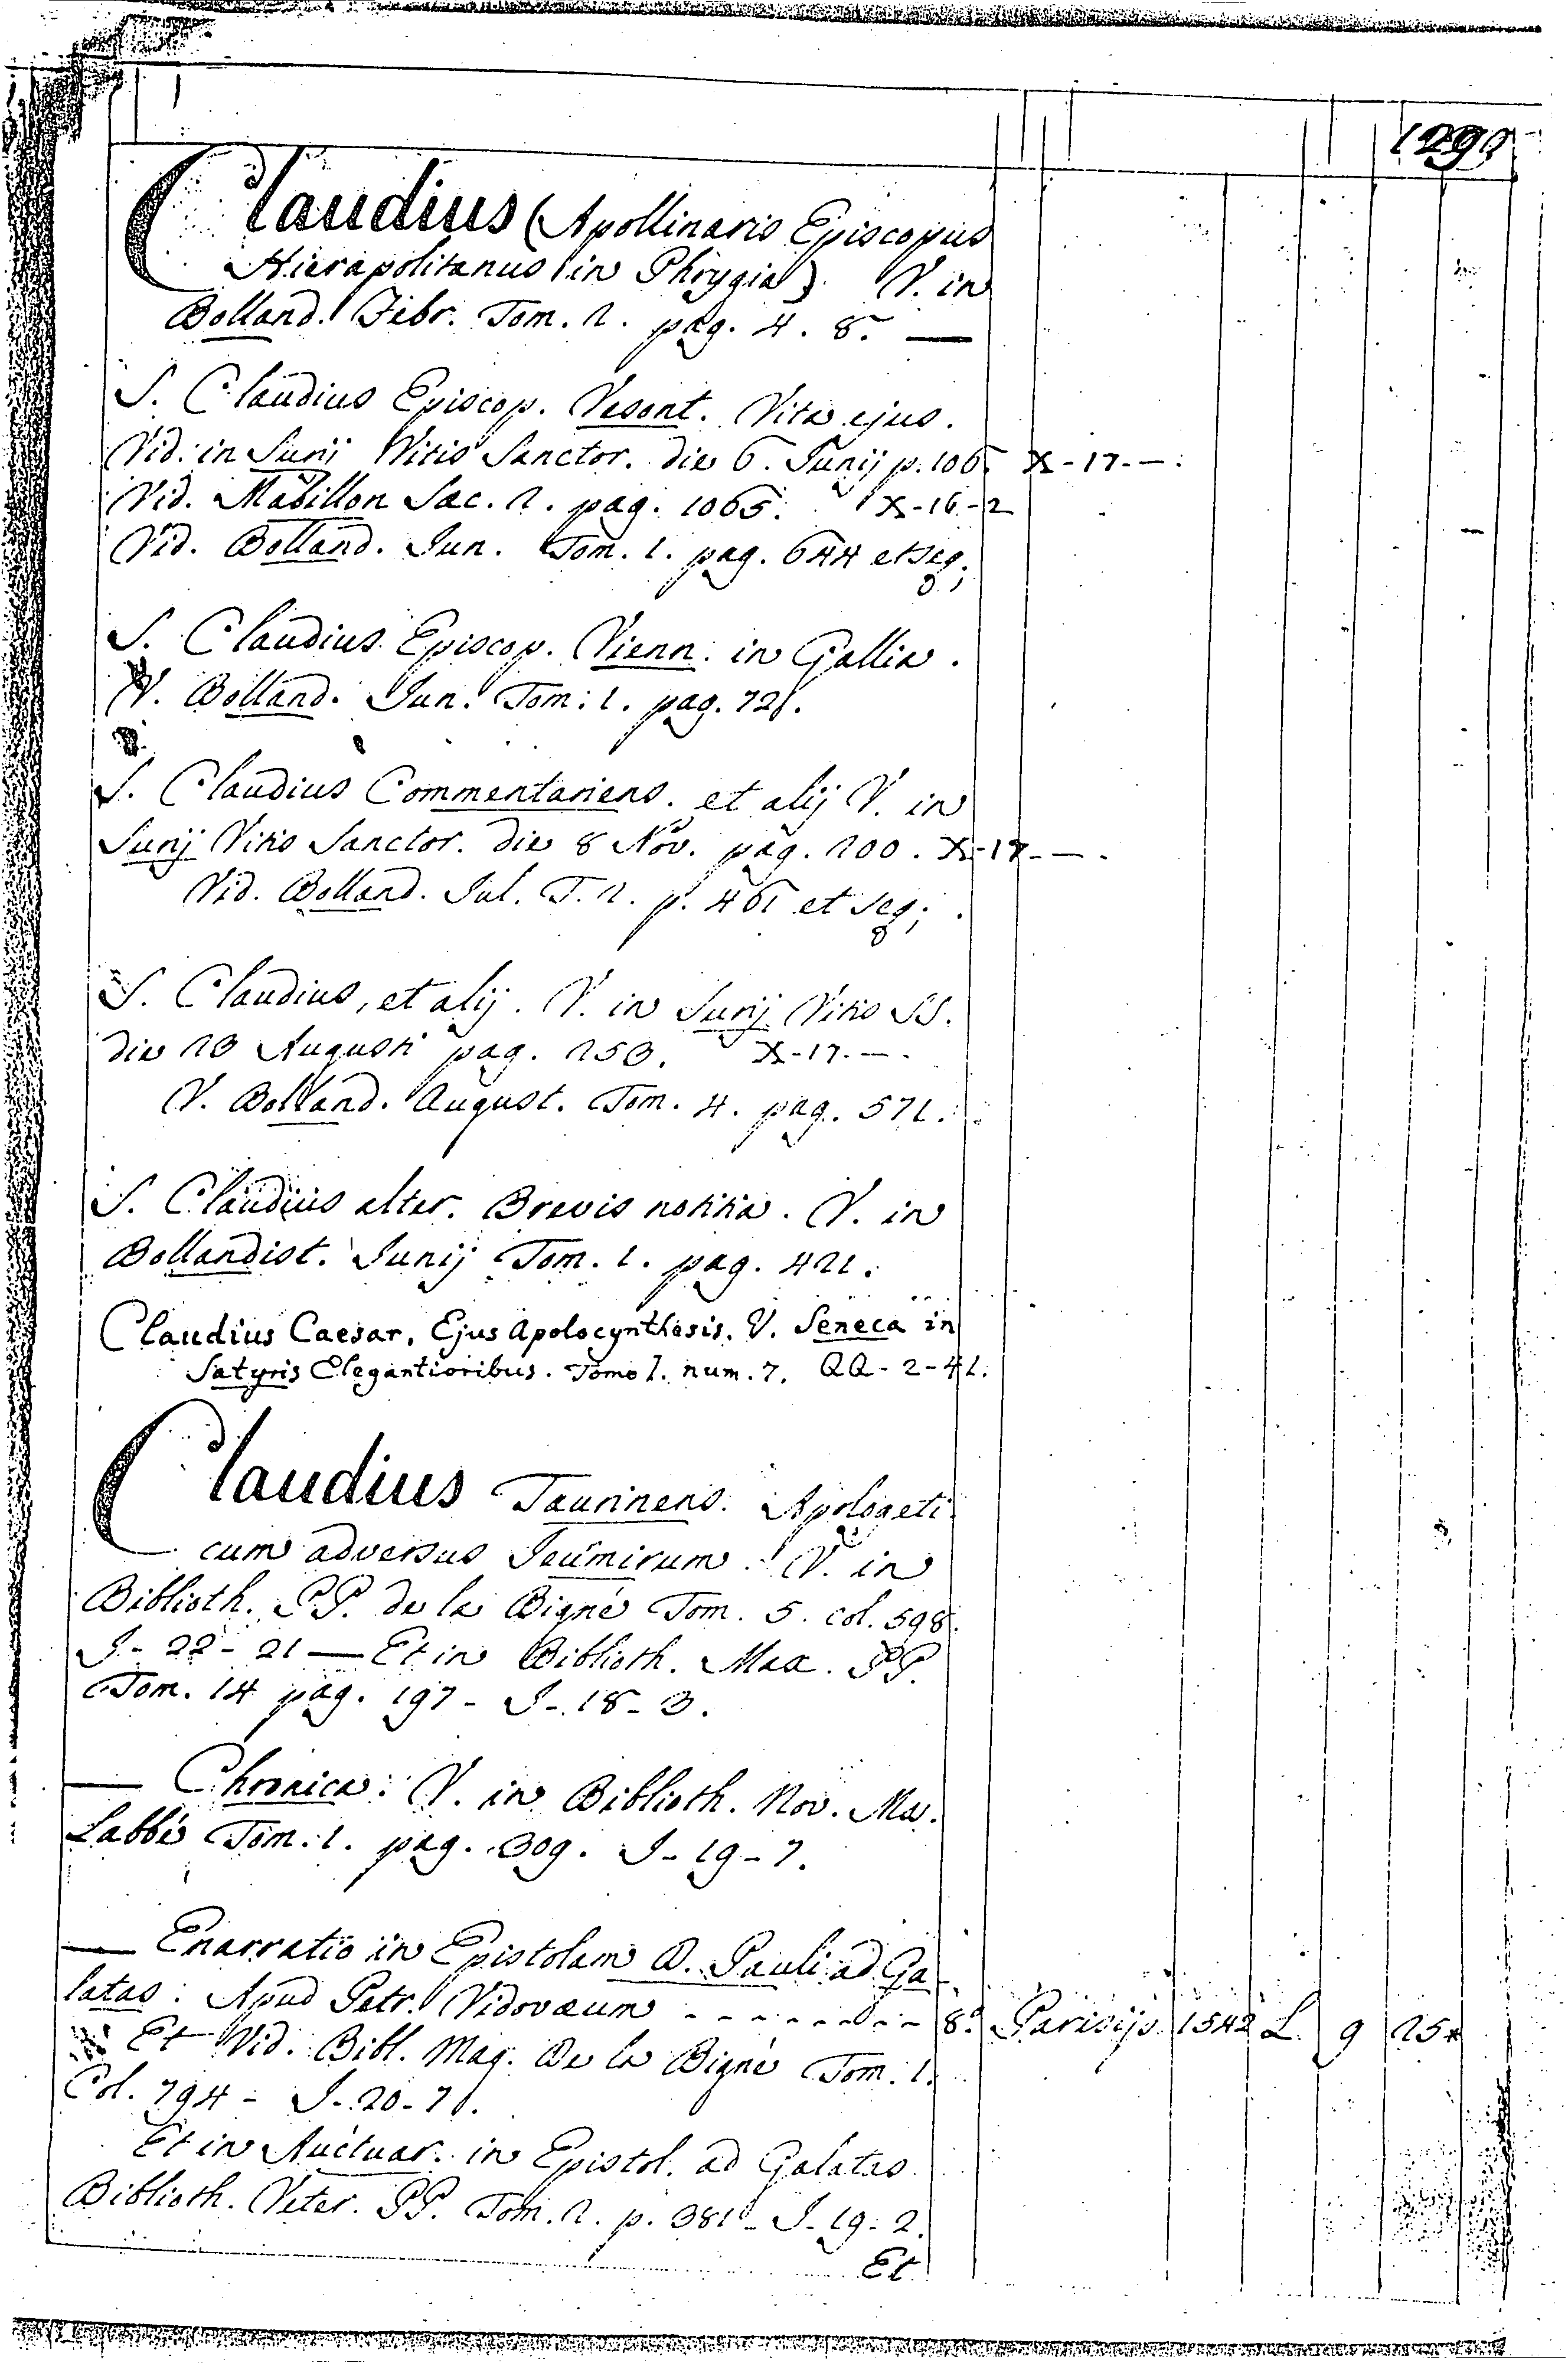 1299
Claudius (Apollinaris Episcopus
Hierapolitanus in Phrygia). V. in
Bolland. Febr. Tom. 2. pag. 4. 8. —
S. Claudius Episcop. Vesont. Vita ejus.
Vid. in Surij Vitis Sanctor. die 6. Junij p. 106. X-17.-.
Vid. Mabillon Sæc. 2. pag. 1065. X-16-2
Vid. Bolland. Jun. Tom. 1. pag. 644 et seq;
S. Claudius Episcop. Vienn. in Gallia.
V. Bolland. Jun. Tom: 1. pag. 721.
S. Claudius Commentariens. et alij V. in
Surij Vitis Sanctor. die 8 Nov. pag. 200. X-17-—.
Vid. Bolland. Jul. T. 2. p. 461 et seq;.
S. Claudius, et alij. V. in Surij Vitis SS.
die 23 Augusti pag. 253. X-17.-—.
V. Bolland. August. Tom. 4. pag. 571.
S. Claudius alter. Brevis notitia. V. in
Bollandist. Junij Tom. 1. pag. 421.
Claudius Caesar, Ejus Apolocynthosis. V. Seneca in
Satyris Elegantioribus. Tomo 1. num. 7. QQ-2-41.
Claudius Taurinens. Apologeti
cum adversus Teumirum. V. in
Biblioth. PP. de la Bigne Tom. 5. col. 598.
I-22-21 — Et in Biblioth. Max. PP.
Tom. 14 pag. 197 - I-18-3.
— Chronica: V. in Biblioth. Nov. Ms.
Labbé Tom. 1. pag. 309. I-19-7.
— Enarratio in Epistolam D. Pauli ad Ga
latas: Apud Petr. Vidovæum - - - - - - - - 8.º Parisijs 1542 L. 9 25*
Et Vid. Bibl. Mag. De la Bigne Tom. 1.
Col. 794 - I-20-71.
Et in Auctuar. in Epistol. ad Galatas
Biblioth. Veter. PP. Tom. 2. p. 381 - I-19-2.
Et